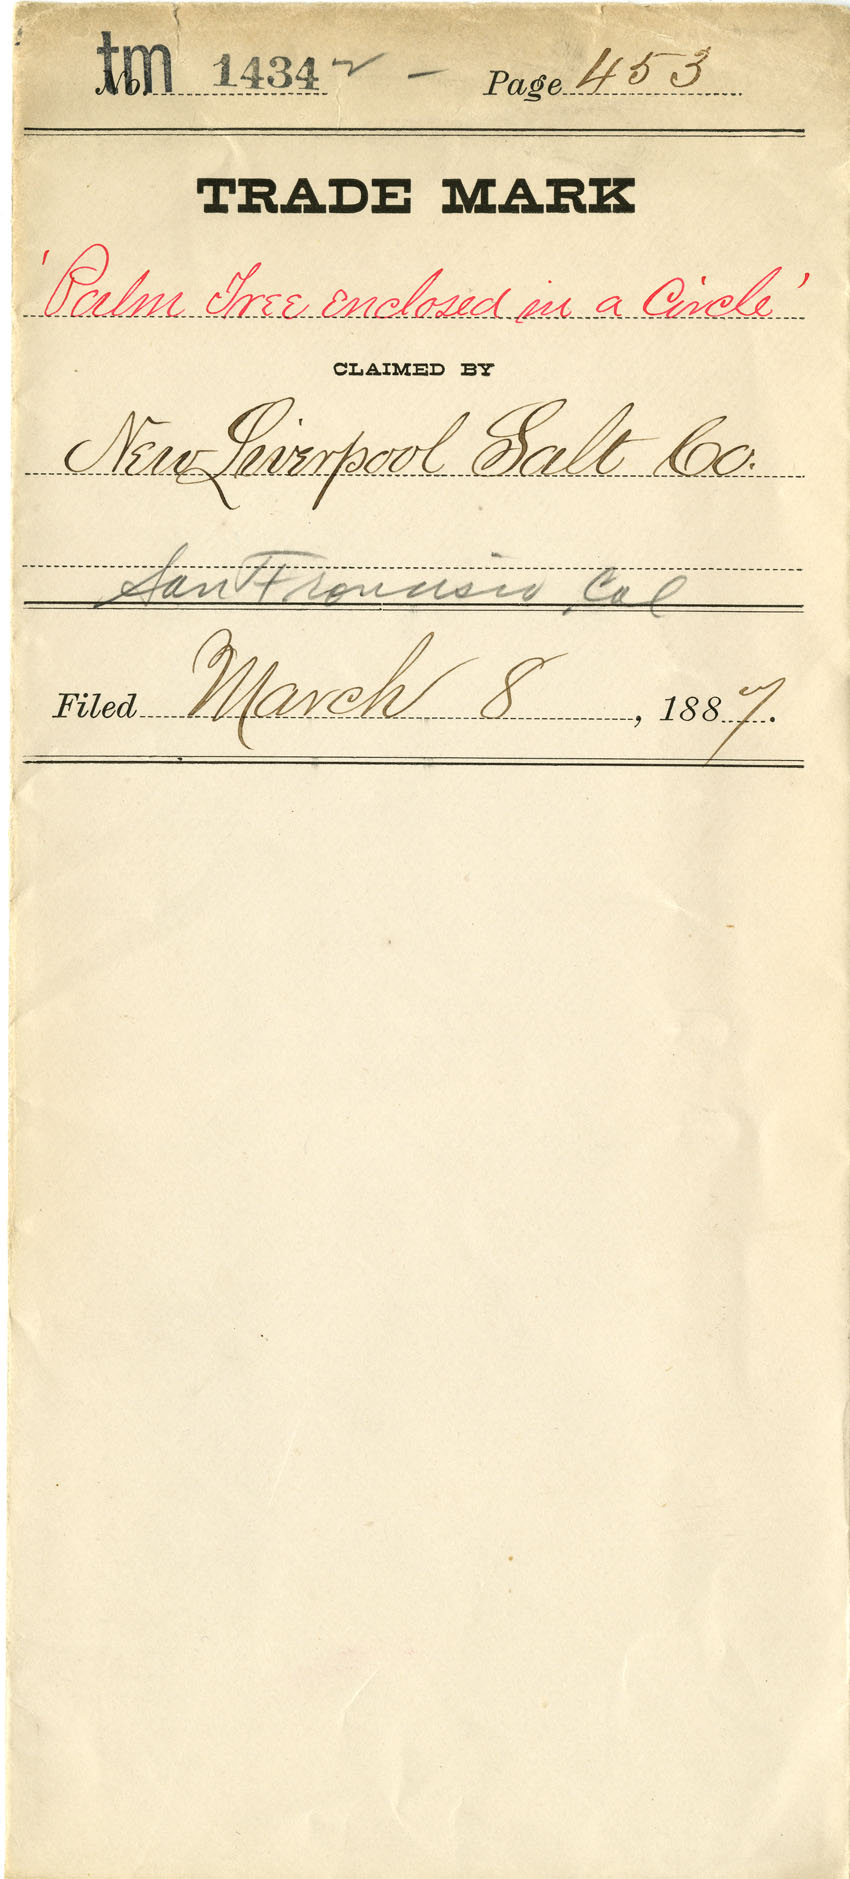 tm No. 1434 Page 453
TRADE MARK
'Palm Tree enclosed in a Circle'
CLAIMED BY
New Liverpool Salt Co.
San Francisco, Cal
Filed March 8, 1887.